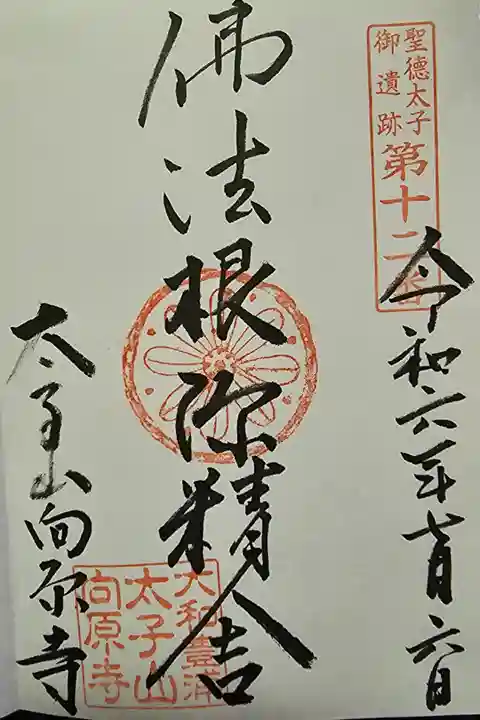 聖德太子
御遺跡
第十二番
令和六年七月六日
佛法根源精舎
太子山向原寺
大和豊浦
太子山
向原寺